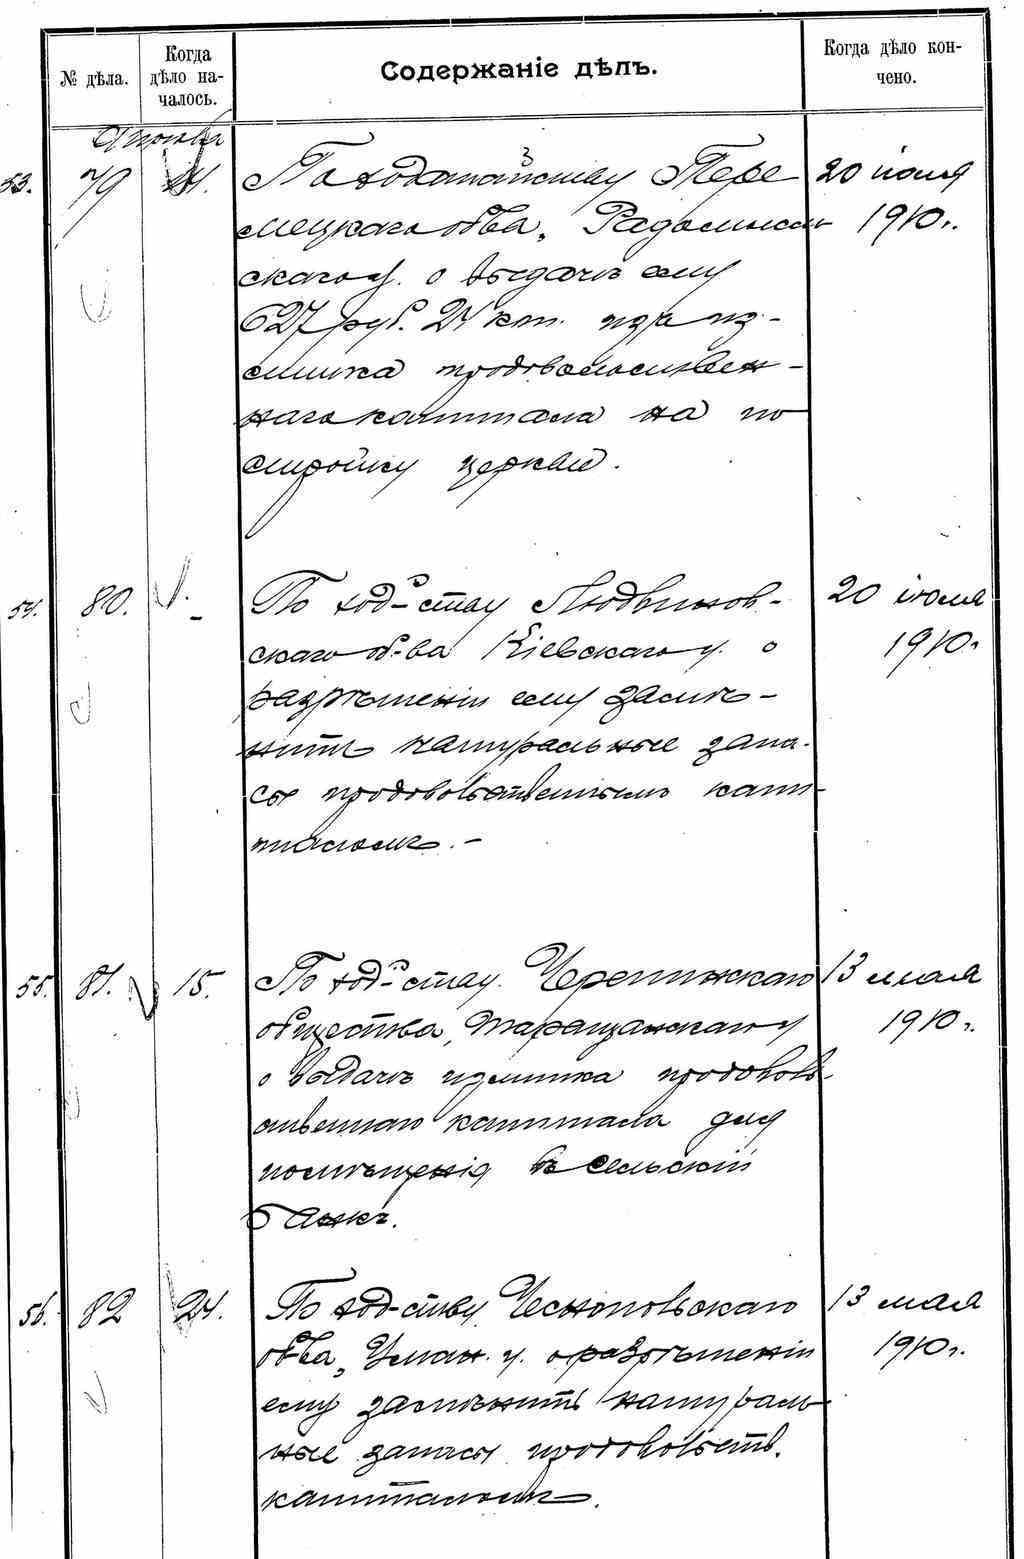 № дѣла.
Когда
дѣло на-
чалось.
Содержаніе дѣлъ.
Когда дѣло кон-
чено.
53.
79
По ходатайству Пере
мецкаго об-ва, Радомысль
скаго у. о выдачѣ ему
627 руб. 24 коп. изъ из-
лишка продовольствен-
наго капитала на по
стройку церкви.
20 іюля
1910 г.
54.
80.
-
По ход-ству Людвинов-
скаго об-ва Кіевскаго у. о
разрѣшеніи ему замѣ-
нить натуральные запа-
сы продовольственнымъ капи-
таломъ. -
20 іюля
1910 г.
55.
81.
15.
По ход-ству Черепинскаго
общества, Таращанскаго у
о выдачѣ излишка продоволь-
ственнаго капитала для
помѣщенія въ сельскій
банкъ.
13 мая
1910 г.
56.
82
24.
По ход-ству Чесноповскаго
об-ва, Уман. у. о разрѣшеніи
ему замѣнить натураль
ные запасы продовольств.
капиталомъ.
13 мая
1910 г.